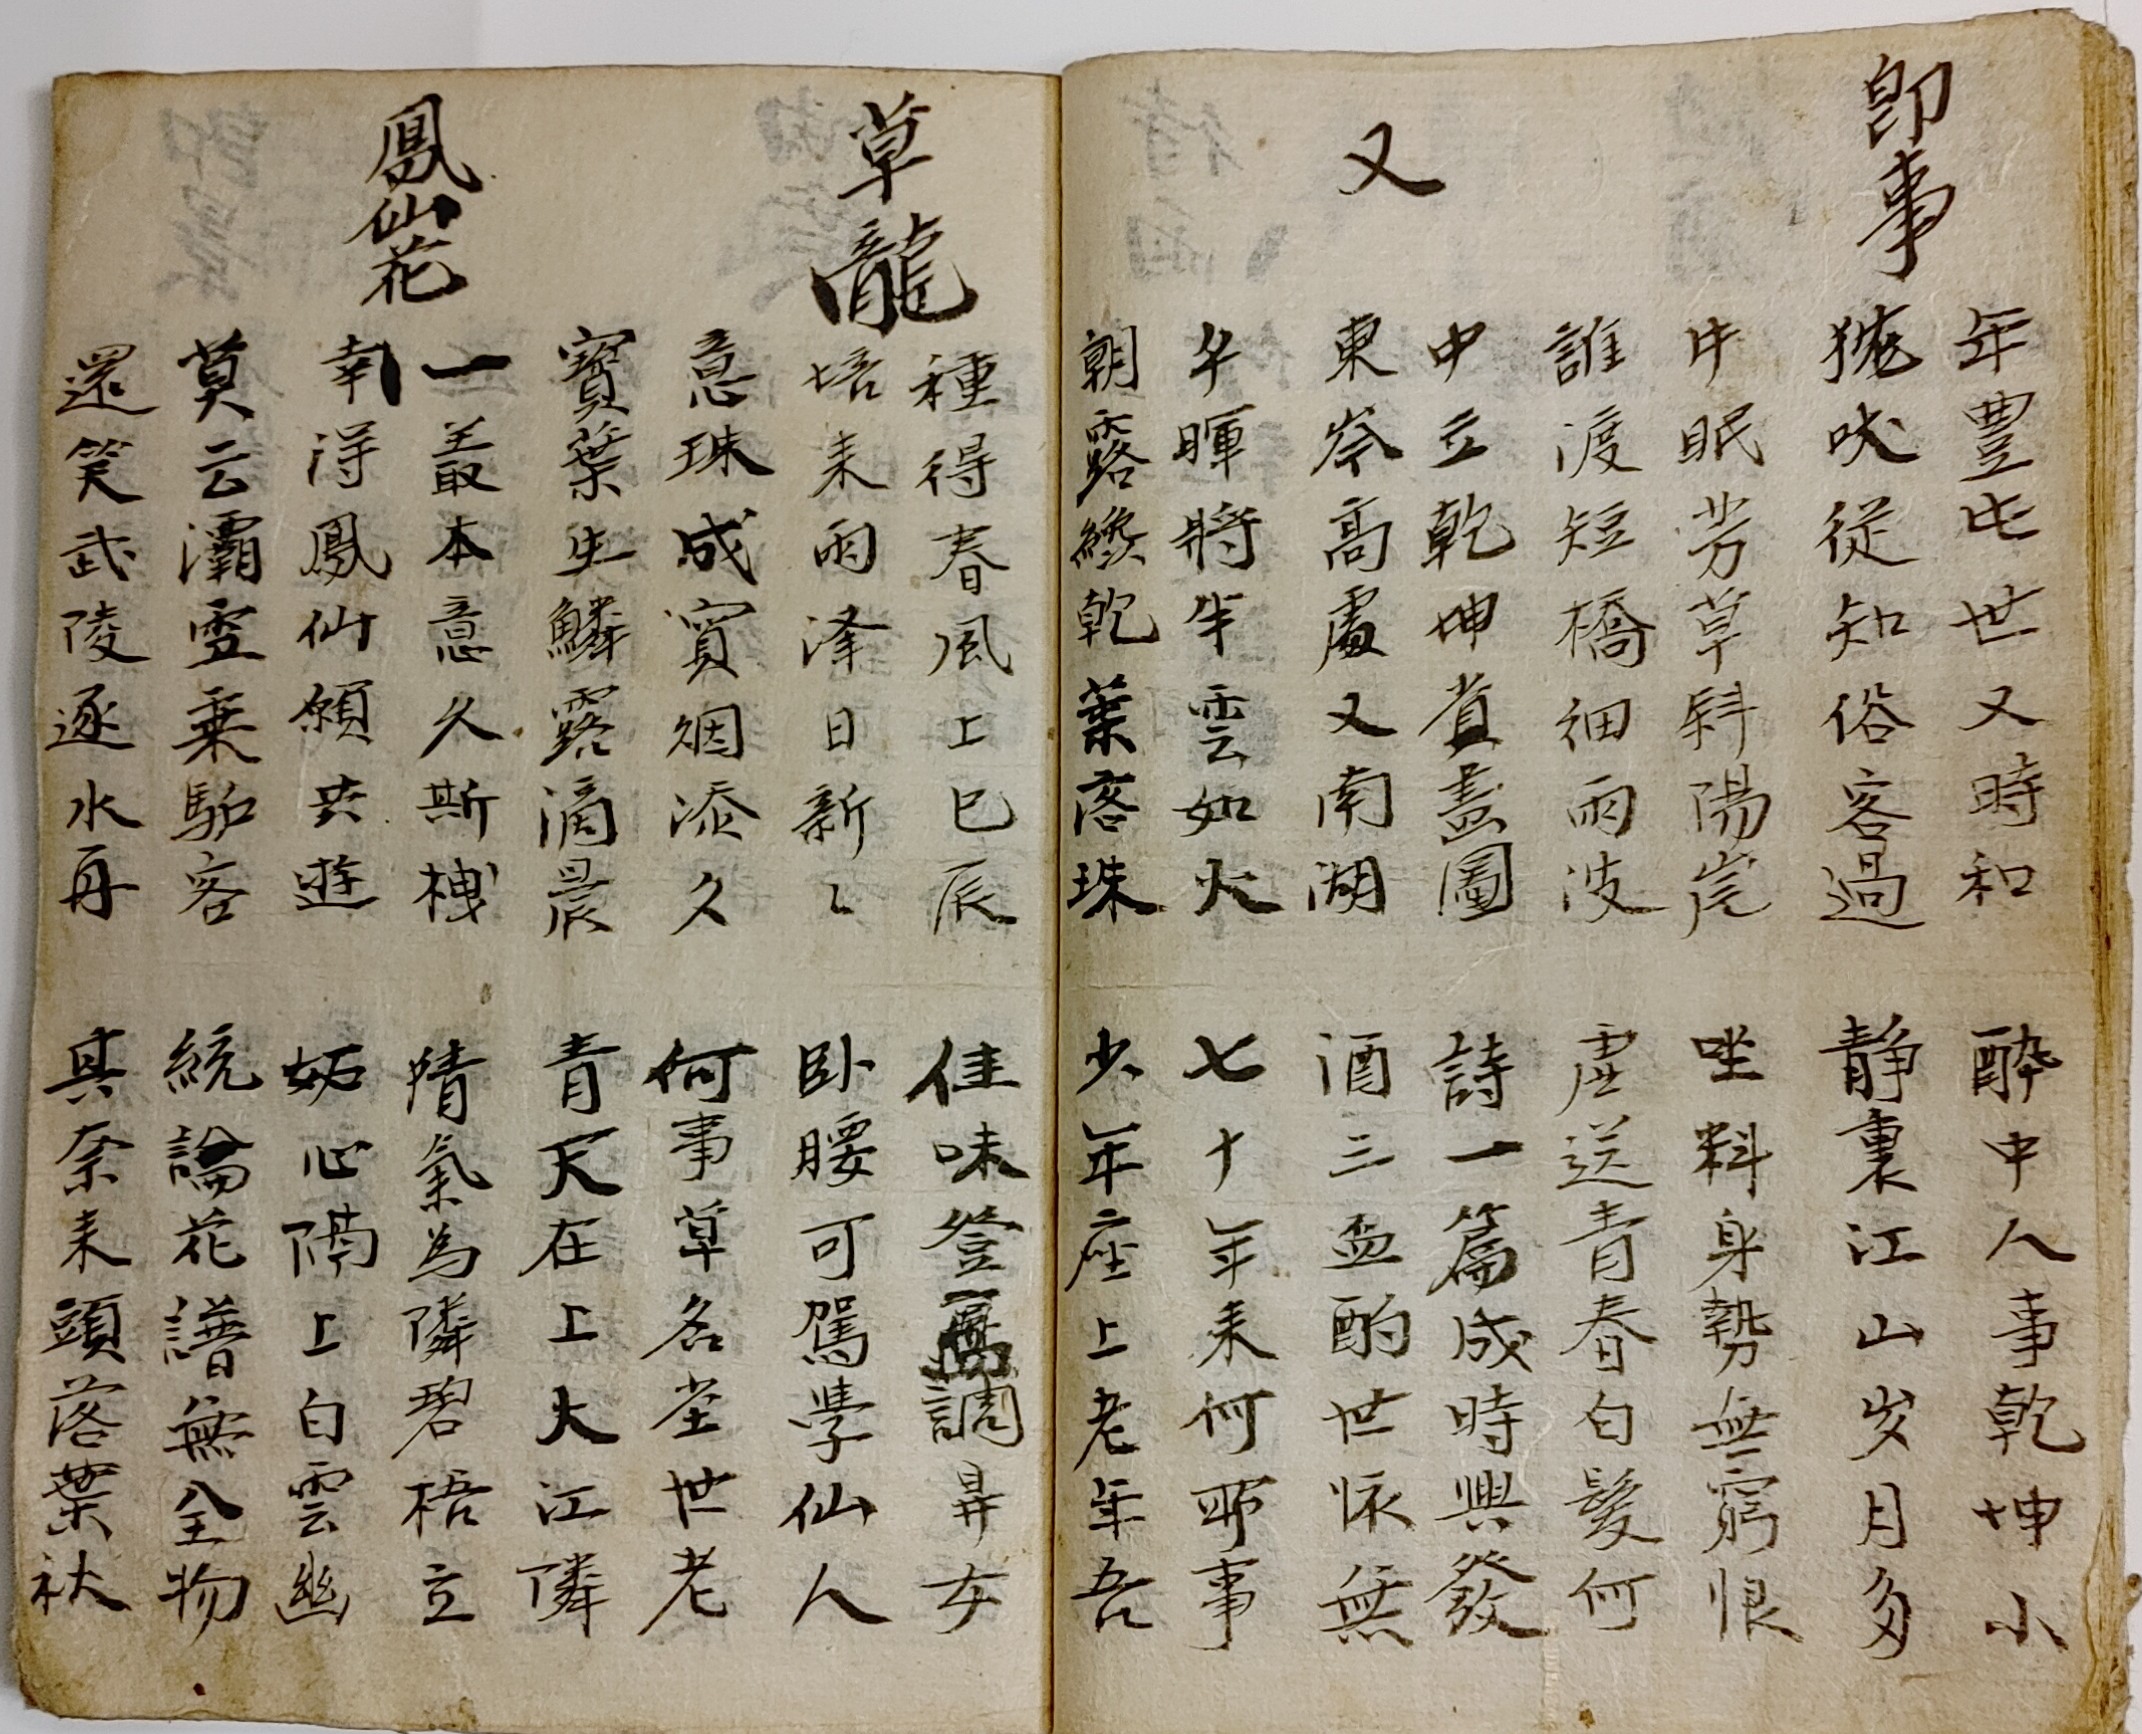 即事
年豊此世又時和 酔中人事乾坤小
狵吠從知俗客過 静裏江山岁月多
牛眠芳草斜陽岸 坐料身勢無窮恨
誰渡短橋細雨波 虛送青春白髮何
又
中立乾坤眘盡圖 詩一篇成時興發
東岑高處又南湖 酒三盃酌世怀無
午暉將半雲如火 七十年来何所事
朝露纔乾葉落珠 少年座上老年吾
草龍
種得春風上巳辰 佳味登 調昇女
培来雨澤日新〻 卧腰可駕學仙人
意珠成實烟添久 何事草名坐世老
寶葉生鱗露滴晨 青天在上大江隣
鳳仙花
一叢本意久斯栧 晴氣為隣碧梧立
幸得鳳仙願共遊 妬心隔上白雲幽
莫云灞雪乗馿客 統論花譜無全物
還笑武陵逐水再 其奈来頭落葉秋